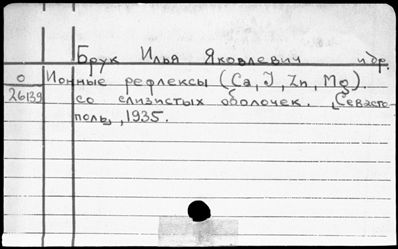 Брук Илья Яковлевич и др.
О Ионные рефлексы (Ca, J, Zn, Mg).
26139 со слизистых оболочек. [Севасто-
поль], 1935.